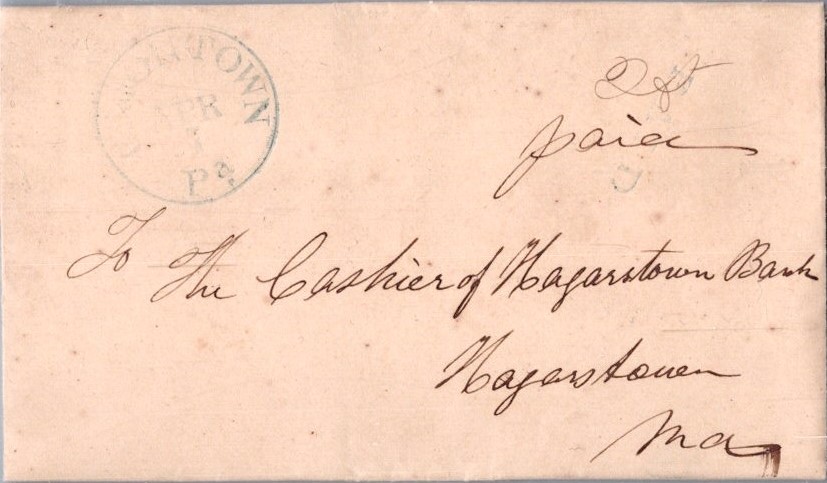 TOWN
APR
1
Pa
paid
To
The Cashier of Hagarstown Bank
Hagerstown
Md